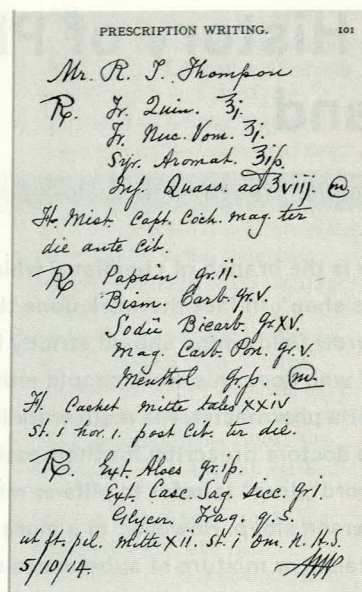 PRESCRIPTION WRITING. 101
Mr. R. T. Thompson
℞. Tr. Quin. ʒj.
Tr. Nuc. Vom. ʒj.
Syr. Aromat. ℥iß.
Inf. Quass. ad ℥viij. m
Ft. Mist. Capt. Coch. mag. ter
die ante cib.
℞ Papain gr. ij.
Bism. Carb. gr. v.
Sodii Bicarb. gr. xv.
Mag. Carb. Pon. gr. v.
Menthol gr. ß. m.
Ft. Cachet mitte tales xxiv
St. i hor. i. post Cib. ter die.
℞. Ext. Aloes gr. iß.
Ext. Casc. Sag. Sicc. gr i.
Glycer. Trag. q.s.
ut ft. pil. mitte xii. St. i om. n. H.S.
5/10/14.